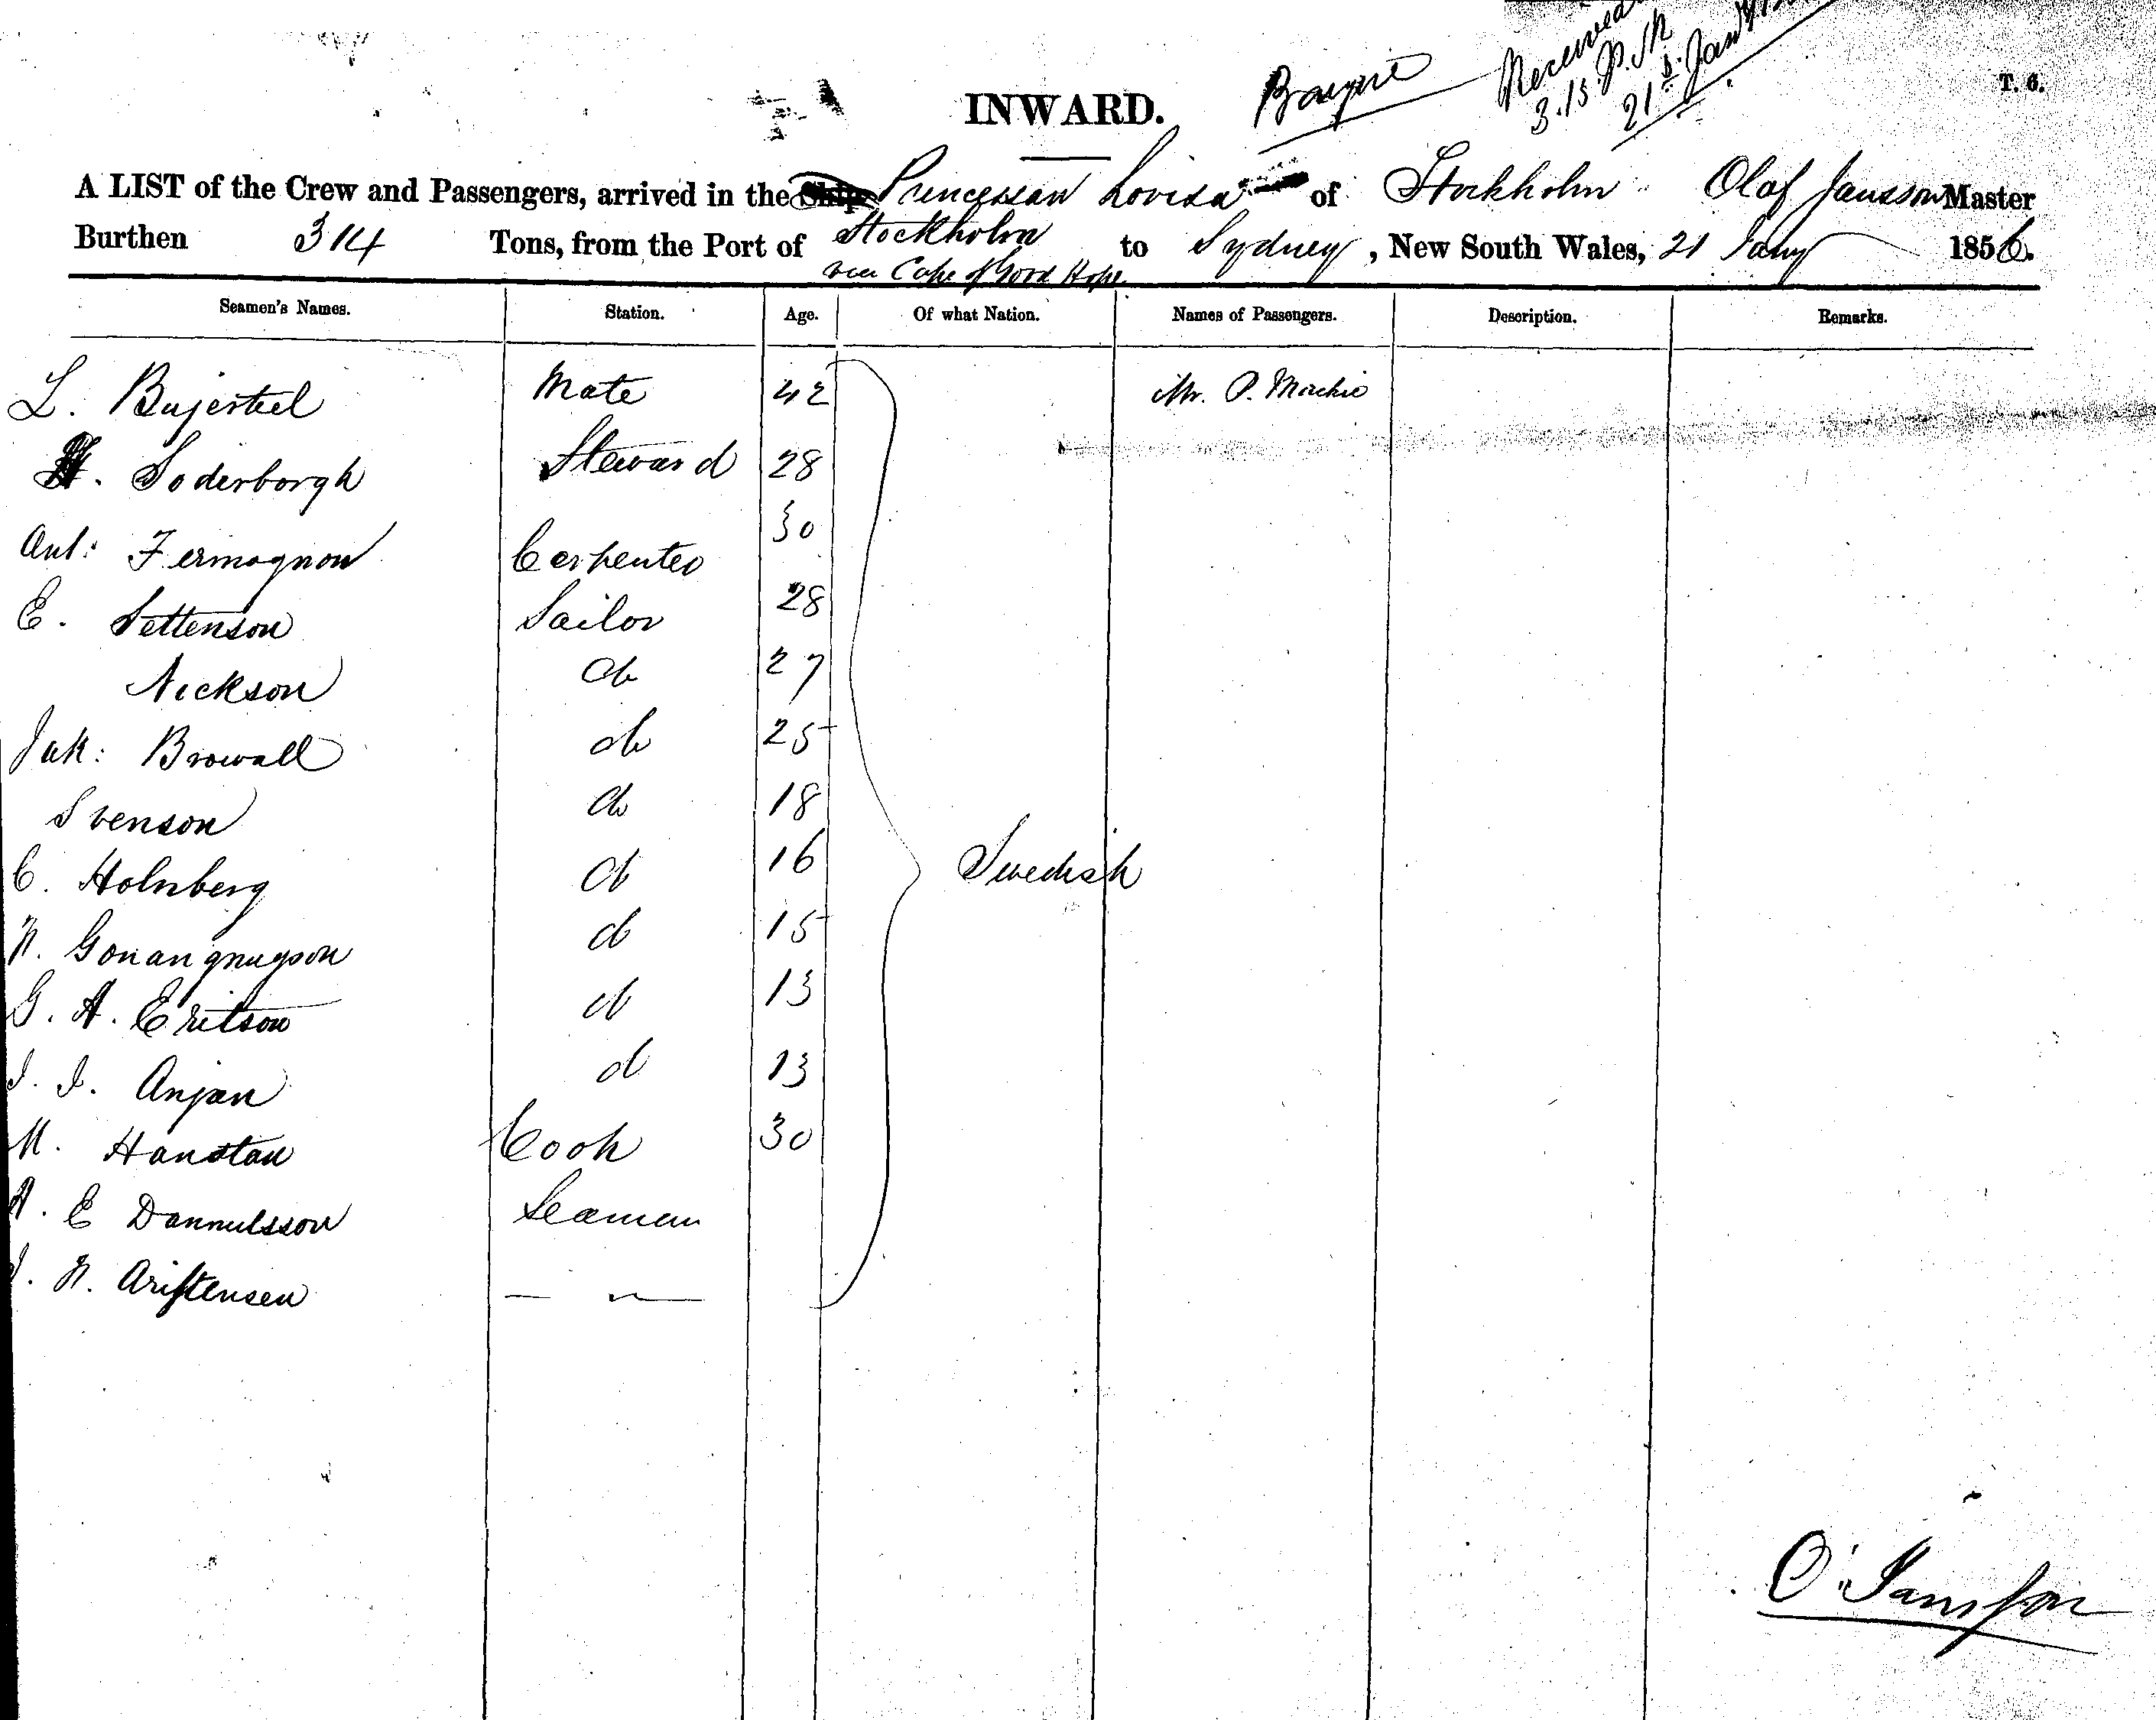 Received
3.15 P.M
21st Jany
INWARD.
T. 6.
A LIST of the Crew and Passengers, arrived in the Ship Princessan Lovisa of Stockholm Olof Jansson Master
Burthen 314 Tons, from the Port of Stockholm to Sydney, New South Wales, 21 Jany 1856.
via Cape of Good Hope.
Seamen's Names. Station. Age. Of what Nation. Names of Passengers. Description. Remarks.
L. Mate 42 Mr. P. Mackie
Soderborgh Steward 28
Ant: Fermagnon Carpenter 30
E. Settenson Sailor 28
Nickson do 27
Jak: Browall do 25
Svenson do 18
C. Holmberg do 16 Swedish
N. do 15
G. A. Eritson do 13
J. J. Anjan do 13
M. Hanstan Cook 30
A. E Dannulsson Seaman
J. N. Aristensen — " —
O. Jansson